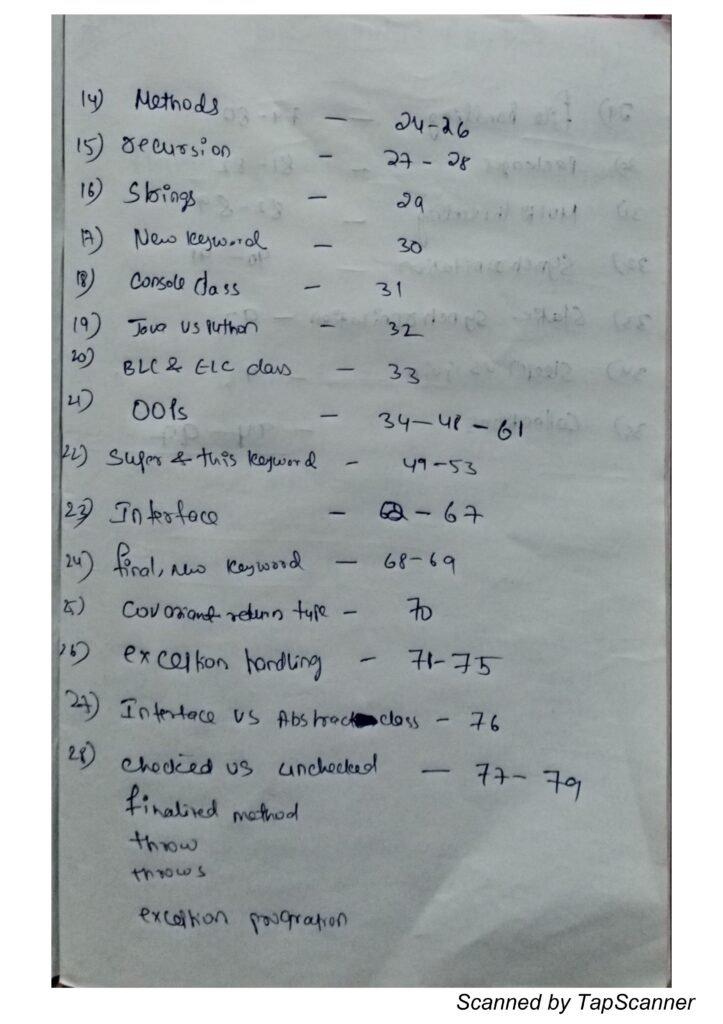 14) Methods — 24-26
15) recursion - 27 - 28
16) Strings - 29
17) New keyword - 30
18) Console class - 31
19) Java vs Python - 32
20) BLC & ELC class - 33
21) OOPs - 34-48 - 61
22) Super & this keyword - 49-53
23) Interface - 62 - 67
24) final, new keyword - 68-69
25) Covariant return type - 70
26) exception handling - 71-75
27) Interface vs Abstract class - 76
28) checked vs unchecked - 77- 79
finalized method
throw
throws
exception
Scanned by TapScanner